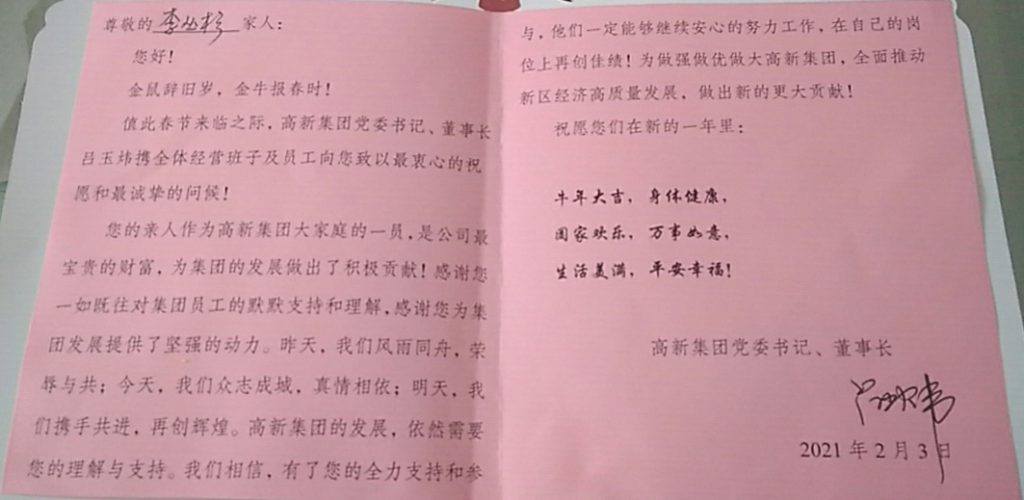 尊敬的李 家人：
您好！
金鼠辞旧岁，金牛报春时！
值此春节来临之际，高新集团党委书记、董事长
吕玉炜携全体经营班子及员工向您致以最衷心的祝
愿和最诚挚的问候！
您的亲人作为高新集团大家庭的一员，是公司最
宝贵的财富，为集团的发展做出了积极贡献！感谢您
一如既往对集团员工的默默支持和理解，感谢您为集
团发展提供了坚强的动力。昨天，我们风雨同舟，荣
辱与共；今天，我们众志成城，真情相依；明天，我
们携手共进，再创辉煌。高新集团的发展，依然需要
您的理解与支持。我们相信，有了您的全力支持和参
与，他们一定能够继续安心的努力工作，在自己的岗
位上再创佳绩！为做强做优做大高新集团，全面推动
新区经济高质量发展，做出新的更大贡献！
祝愿您们在新的一年里：
牛年大吉，身体健康，
阖家欢乐，万事如意，
生活美满，平安幸福！
高新集团党委书记、董事长
吕玉炜
2021年2月3日